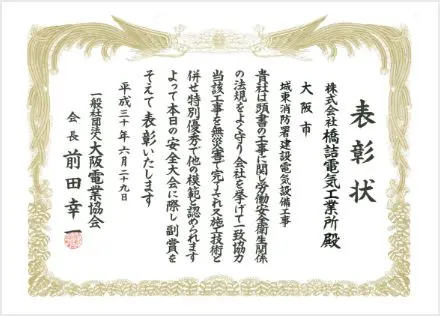 表彰状
株式会社橋詰電気工業所殿
大阪市
城東消防署建設電気設備工事
貴社は頭書の工事に関し労働安全衛生関係
の法規をよく守り会社を挙げて一致協力
当該工事を無災害で完了され又施工技術も
併せ特別優秀で他の模範と認められます
よって本日の安全大会に際し副賞を
そえて表彰いたします
平成三十年六月二十九日
一般社団法人大阪電業協会
会長 前田幸一